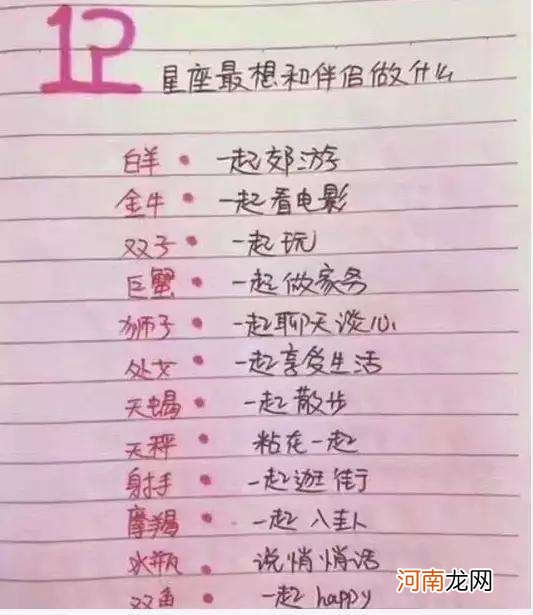 12
星座最想和伴侣做什么
白羊 • 一起郊游
金牛 • 一起看电影
双子 • 一起玩
巨蟹 • 一起做家务
狮子 • 一起聊天谈心
处女 • 一起享受生活
天蝎 • 一起散步
天秤 • 粘在一起
射手 • 一起逛街
摩羯 • 一起八卦
水瓶 • 说悄悄话
双鱼 • 一起 happy
河南龙网